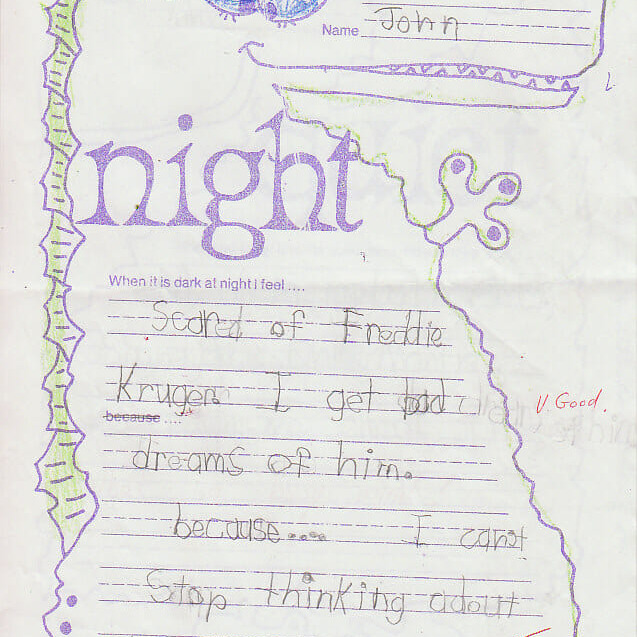 Name John
night
When it is dark at night I feel ....
Scared of Freddie
Kruger. I get bad
V. Good.
because ....
dreams of him.
because.... I can't
Stop thinking adout